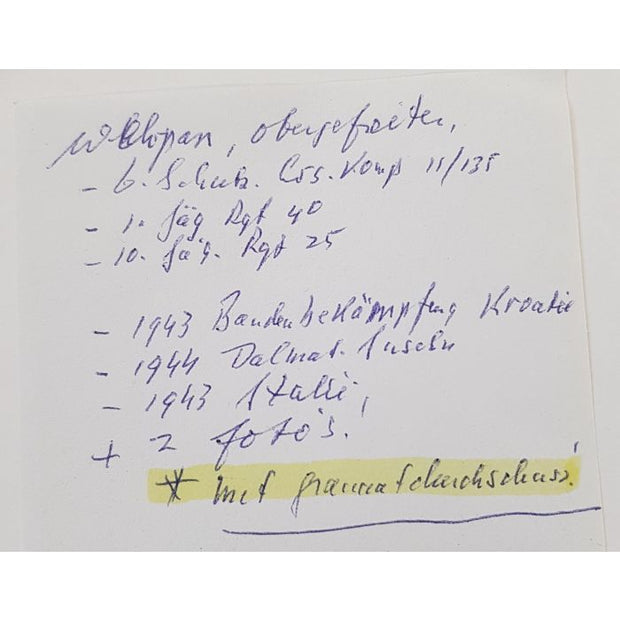 Wehrpass, obergefreiter,
- 6. Schütz. Ers. Komp II/135
- 1. Jäg Rgt 40
- 10. Jäg. Rgt 25
- 1943 Bandenbekämpfung Kroatie
- 1944 Dalmat. Inseln
- 1943 Italië,
+ 2 foto's!
* mit granaatdurchschuss!